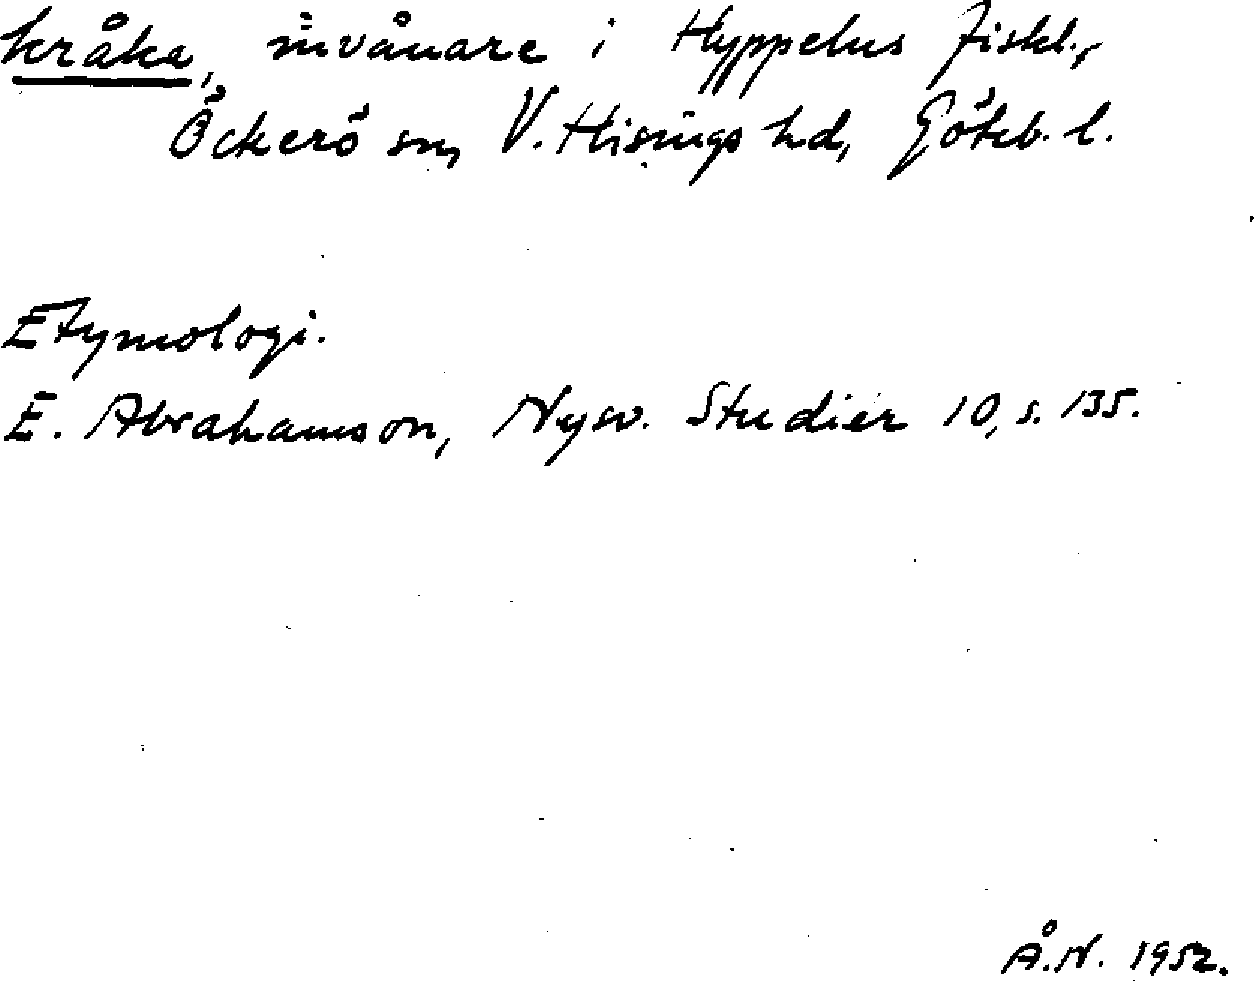 kråke, invånare i Hyppelns fiskl.,
Öckerö sn, V. Hisings hd, Göteb. l.
Etymologi.
E. Abrahamson, Nysv. Studier 10, s. 135.
Å.N. 1952.